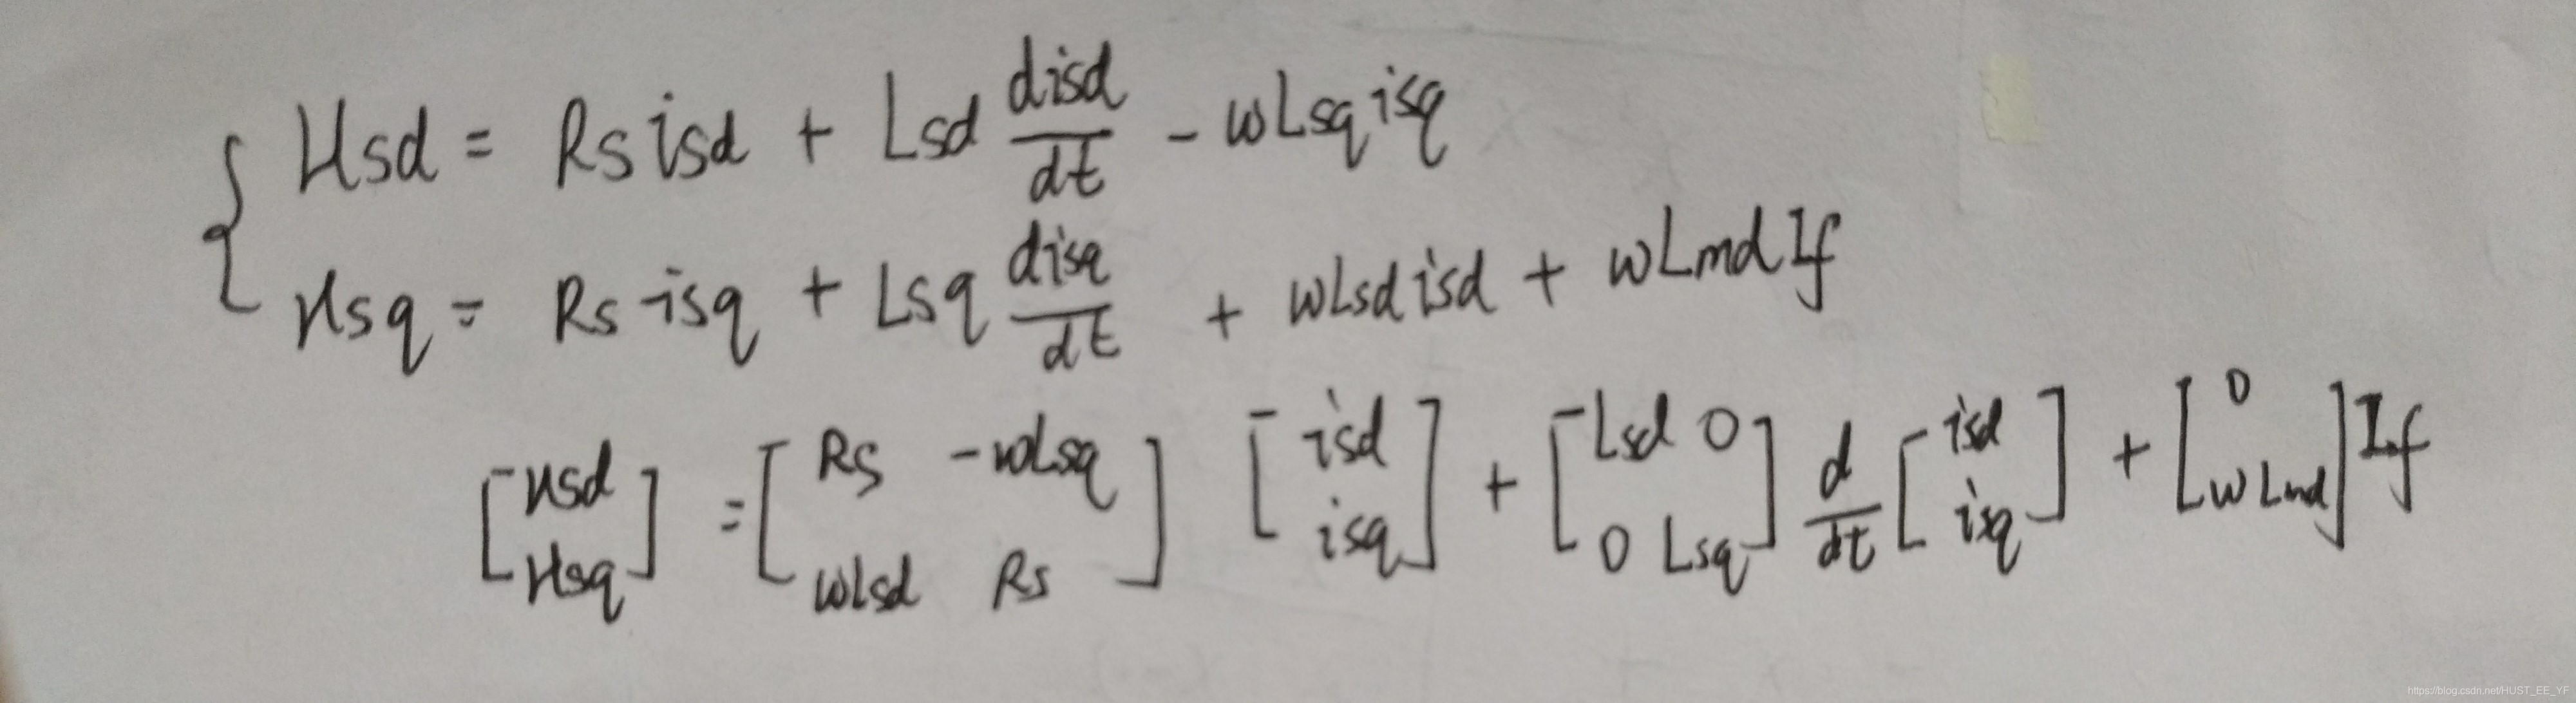 { Usd = Rs isd + Lsd disd/dt - wLsq isq
Usq = Rs isq + Lsq disq/dt + wLsd isd + wLmd If
[Usd Usq] = [Rs -wLsq wLsd Rs] [isd isq] + [Lsd 0 0 Lsq] d/dt [isd isq] + [0 wLmd] If
https://blog.csdn.net/HUST_EE_YF